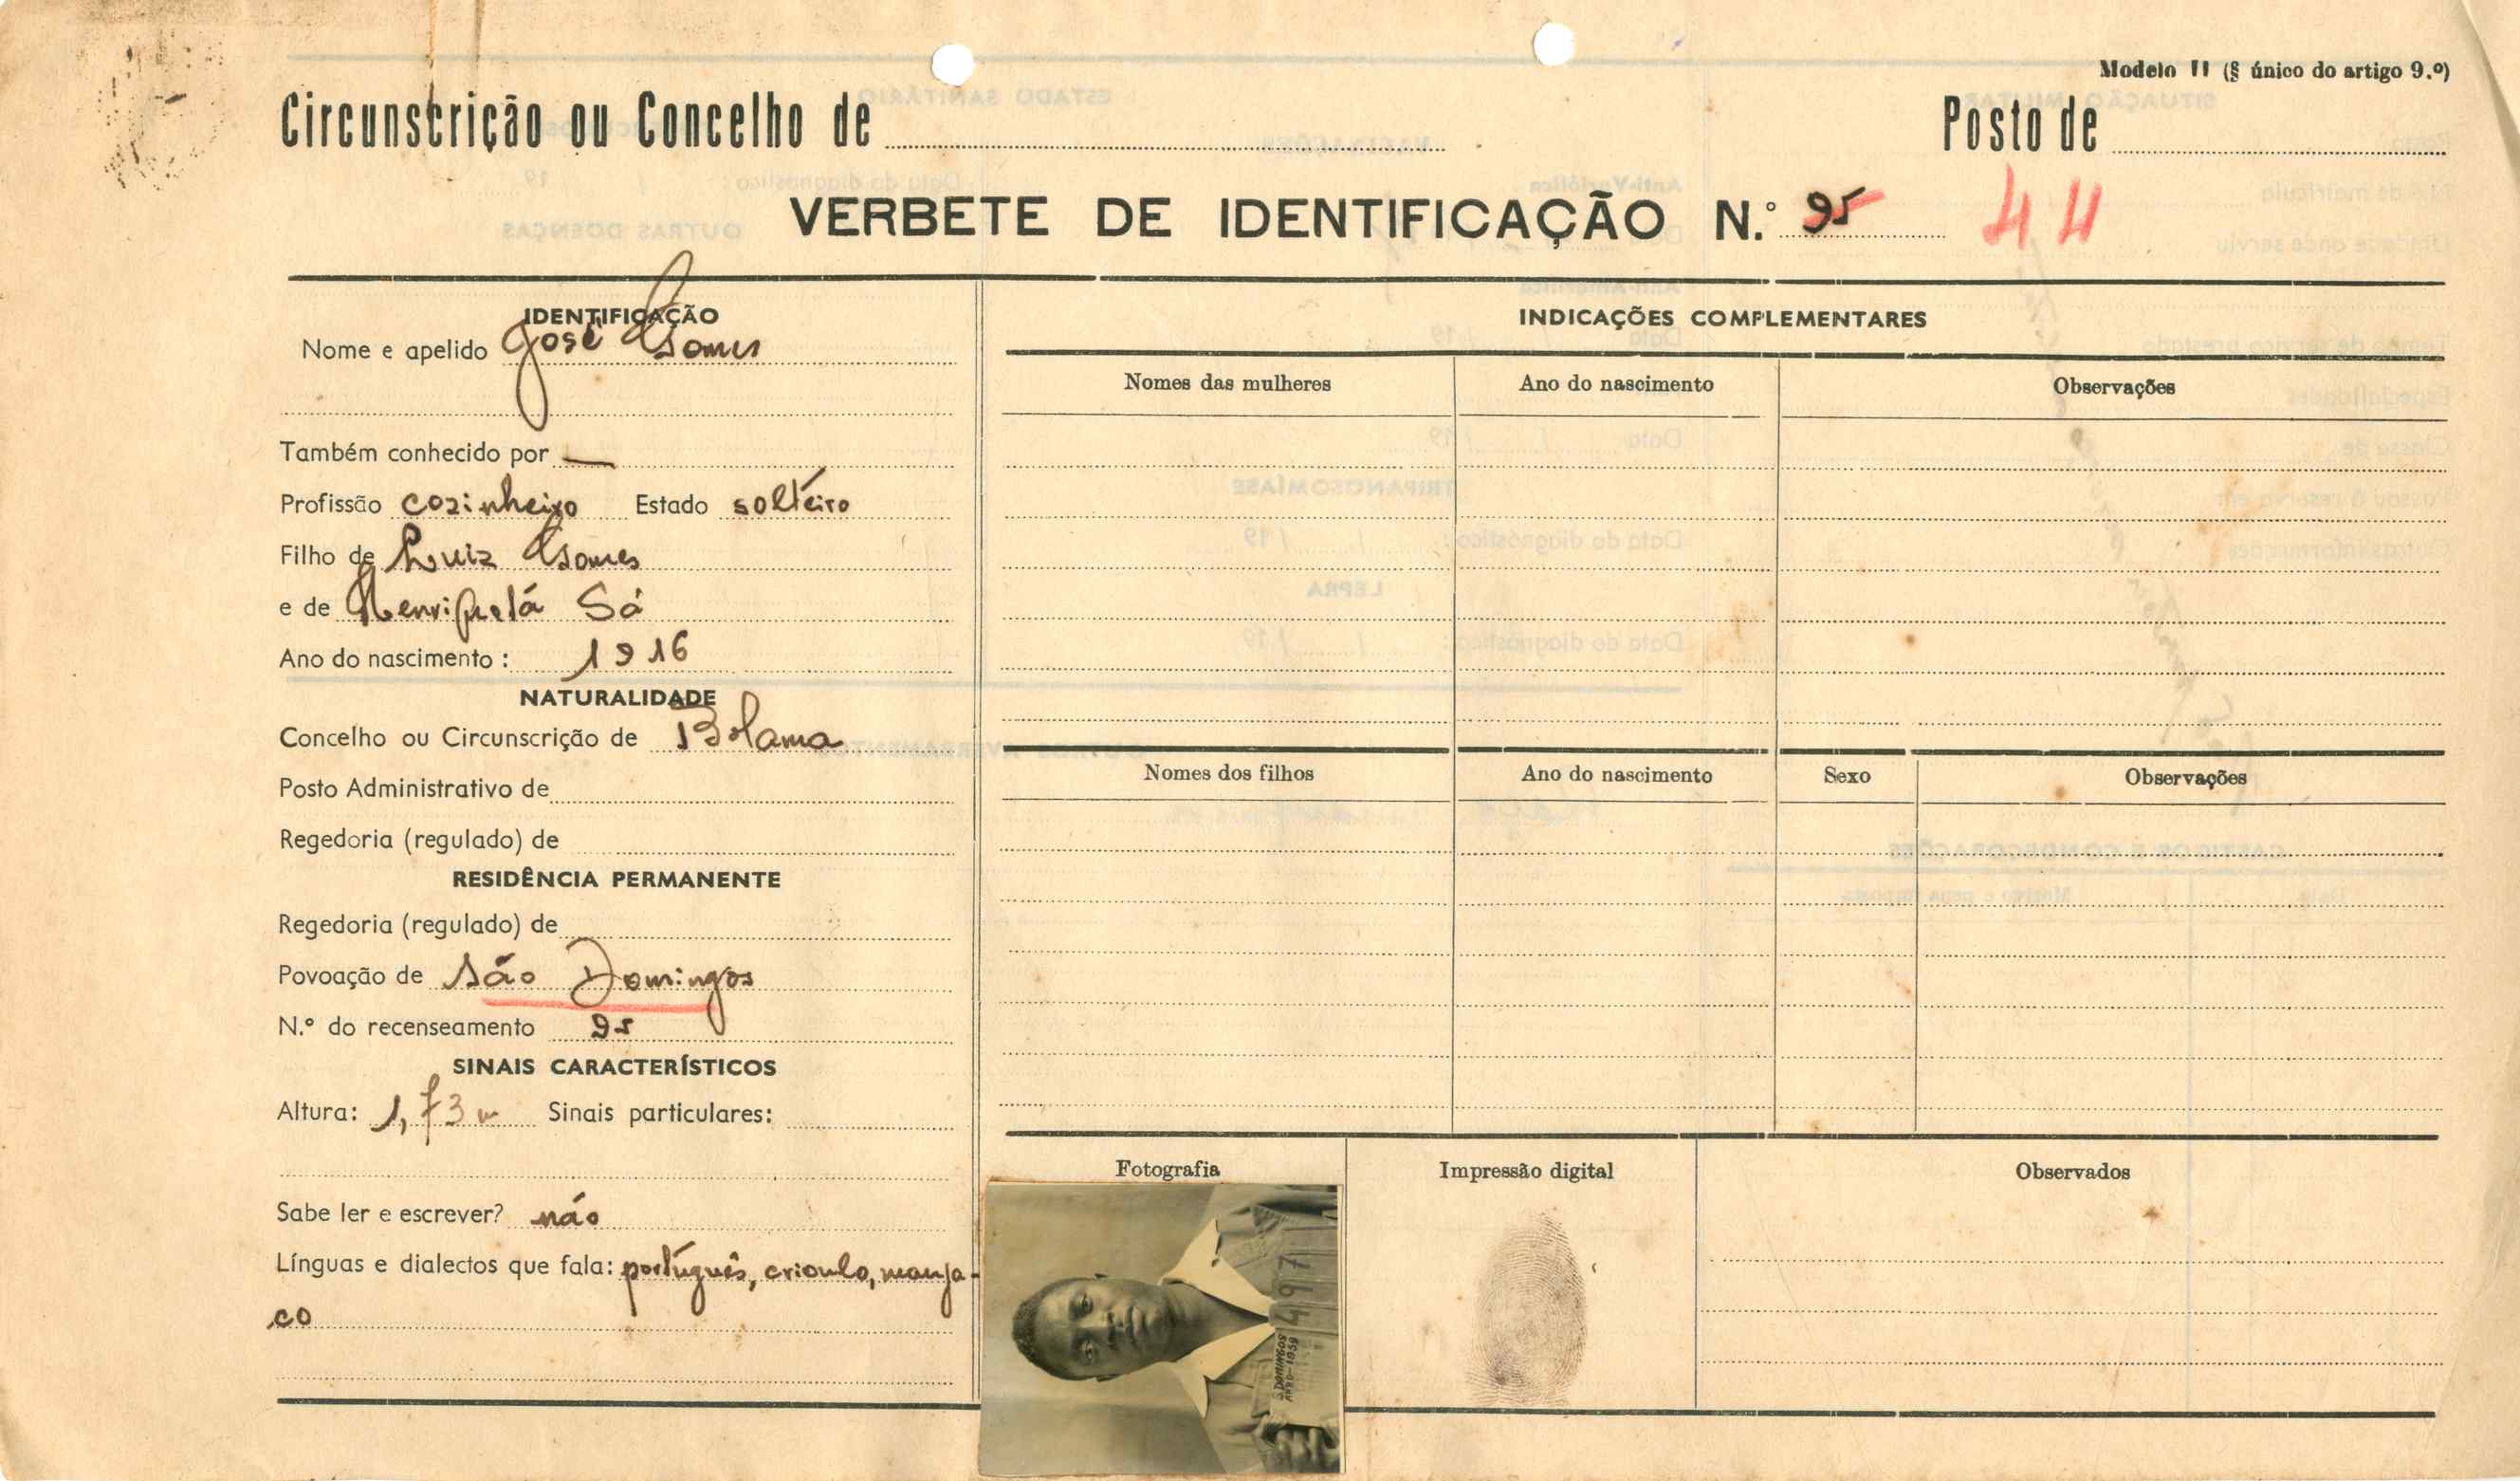 Modelo II (§ único do artigo 9.º)
Circunscrição ou Concelho de
Posto de
VERBETE DE IDENTIFICAÇÃO N.º 95 44
IDENTIFICAÇÃO
Nome e apelido José Gomes
Também conhecido por —
Profissão cozinheiro Estado soltéiro
Filho de Luiz Gomes
e de Henriquetá Sá
Ano do nascimento : 1916
NATURALIDADE
Concelho ou Circunscrição de Bolama
Posto Administrativo de
Regedoria (regulado) de
RESIDÊNCIA PERMANENTE
Regedoria (regulado) de
Povoação de São Domingos
N.º do recenseamento 95
SINAIS CARACTERÍSTICOS
Altura: 1,73 m Sinais particulares:
Sabe ler e escrever? não
Línguas e dialectos que fala: português, crioulo, manja-
co
INDICAÇÕES COMPLEMENTARES
Nomes das mulheres Ano do nascimento Observações
Nomes dos filhos Ano do nascimento Sexo Observações
Fotografia Impressão digital Observados
497
S. DOMINGOS